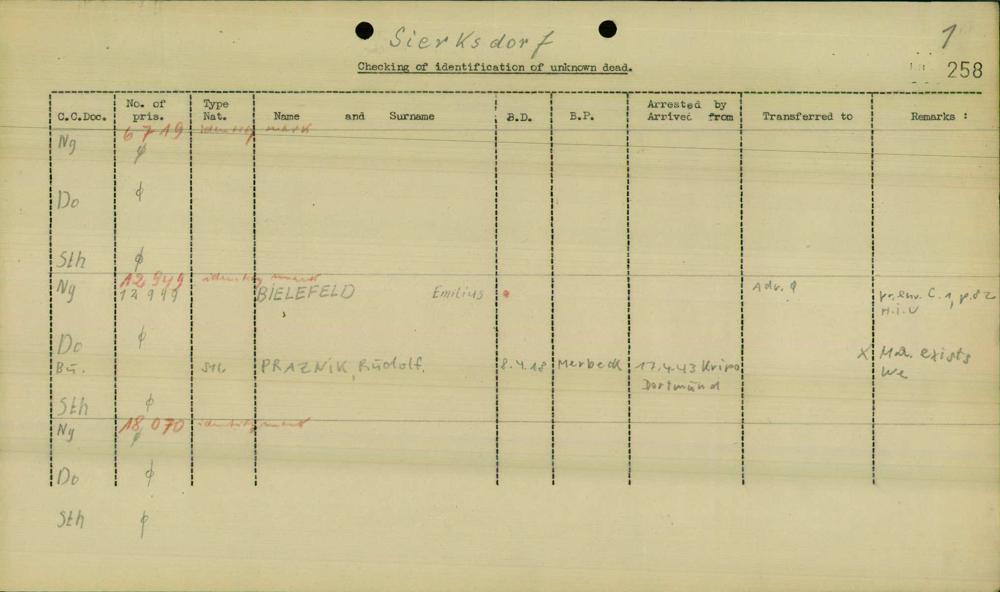 Sierksdorf
1
Checking of identification of unknown dead.
258
C.C.Doc. No. of pris. Type Nat. Name and Surname B.D. B.P. Arrested by Arrived from Transferred to Remarks :
6719 identity mark
Ng ϕ
Do ϕ
Sth ϕ
12949 identity mark
Ng 12949 BIELEFELD Emilius Adr. C. 1, p. 82
Do ϕ
Bu. PRAZNIK, Rudolf. 8.4.18 Merbeck 17.4.43 Kripo X exists
Dortmund we
Sth ϕ
18070 identity mark
Ng ϕ
Do ϕ
Sth ϕ